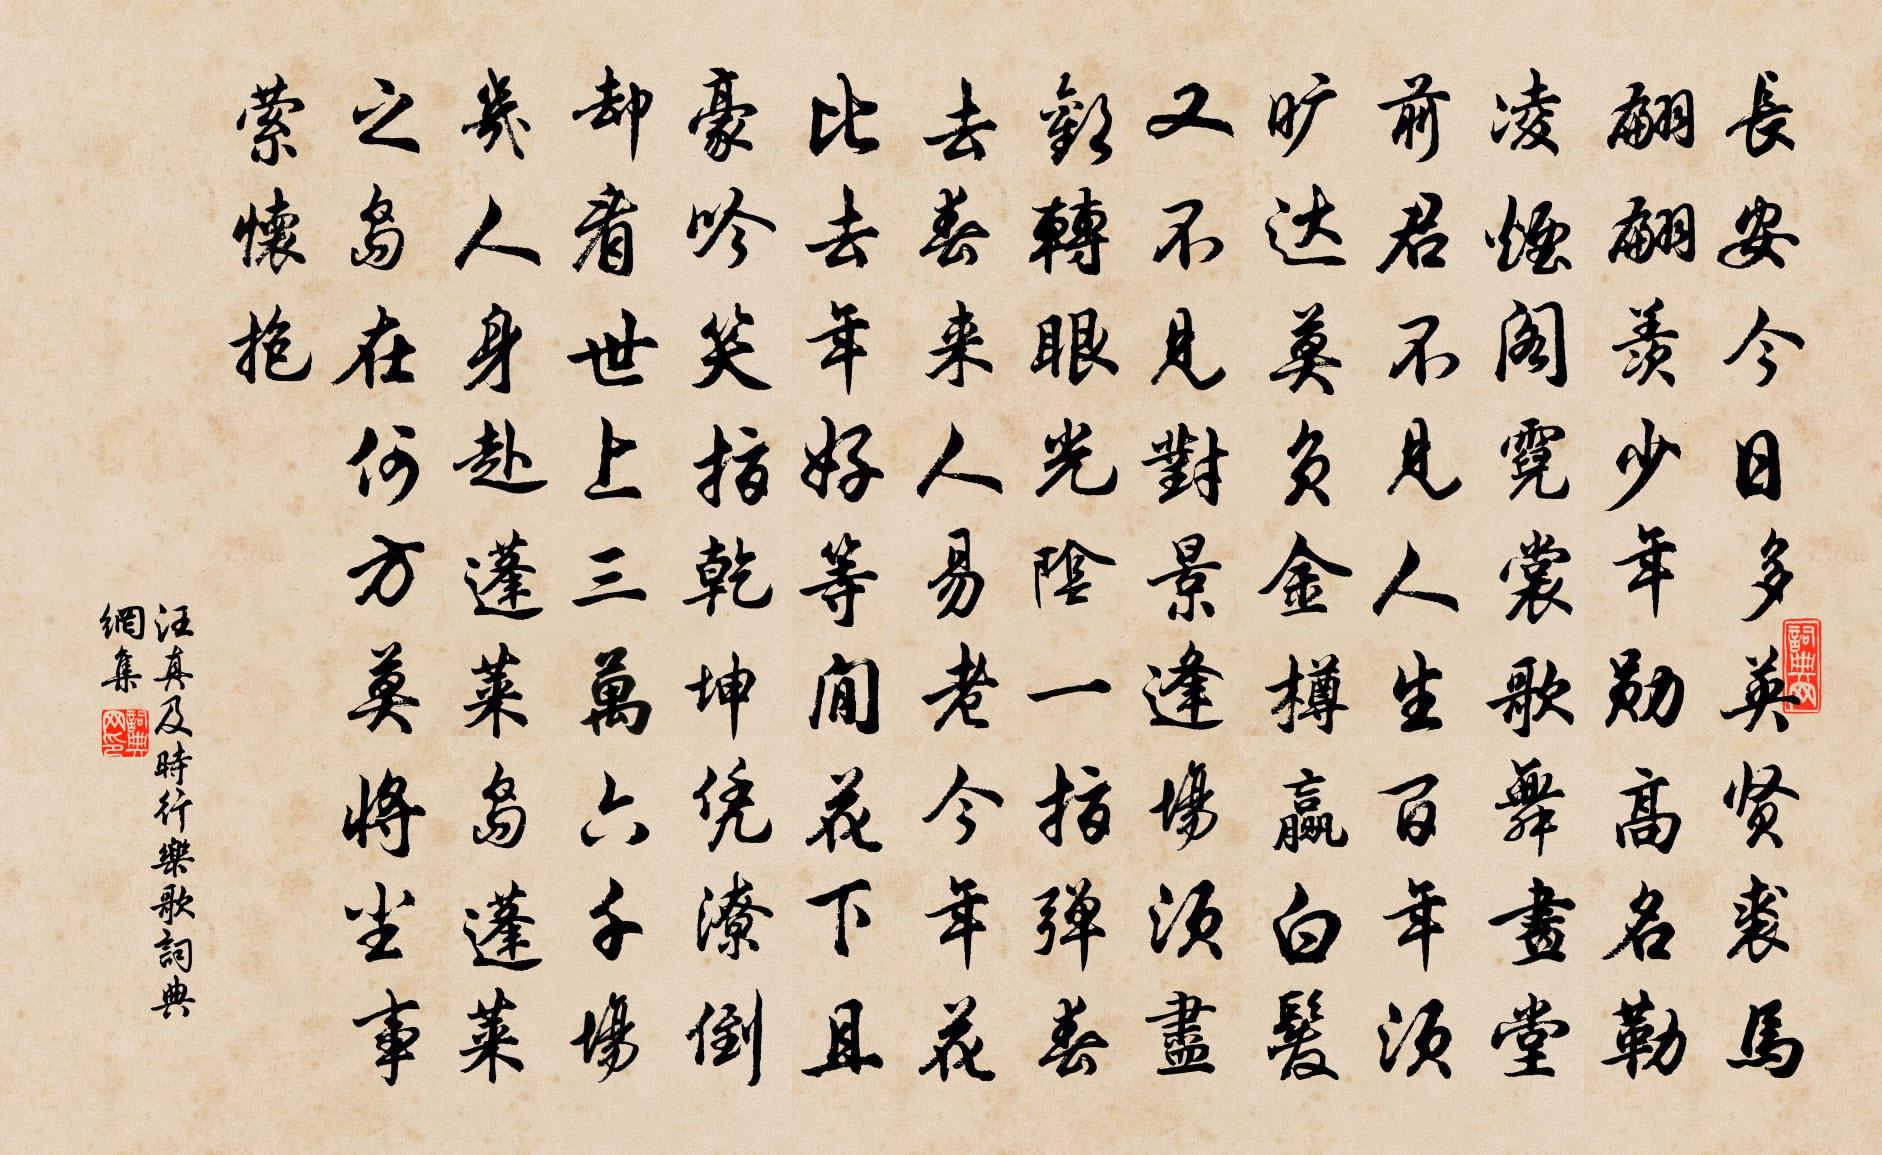 長安今日多英贤裘馬
翩翩羨少年勋高名勒
凌煙阁霓裳歌舞畫堂
前君不見人生百年須
旷达莫负金樽赢白髮
又不見對景逢場須盡
歡轉眼光陰一指弹春
去春来人易老今年花
比去年好等閒花下且
豪吟笑指乾坤凭潦倒
却看世上三萬六千場
幾人身赴蓬莱岛蓬莱
之岛在何方莫將尘事
萦懷抱
汪真及時行樂歌詞典
網集
詞典网
詞典网印